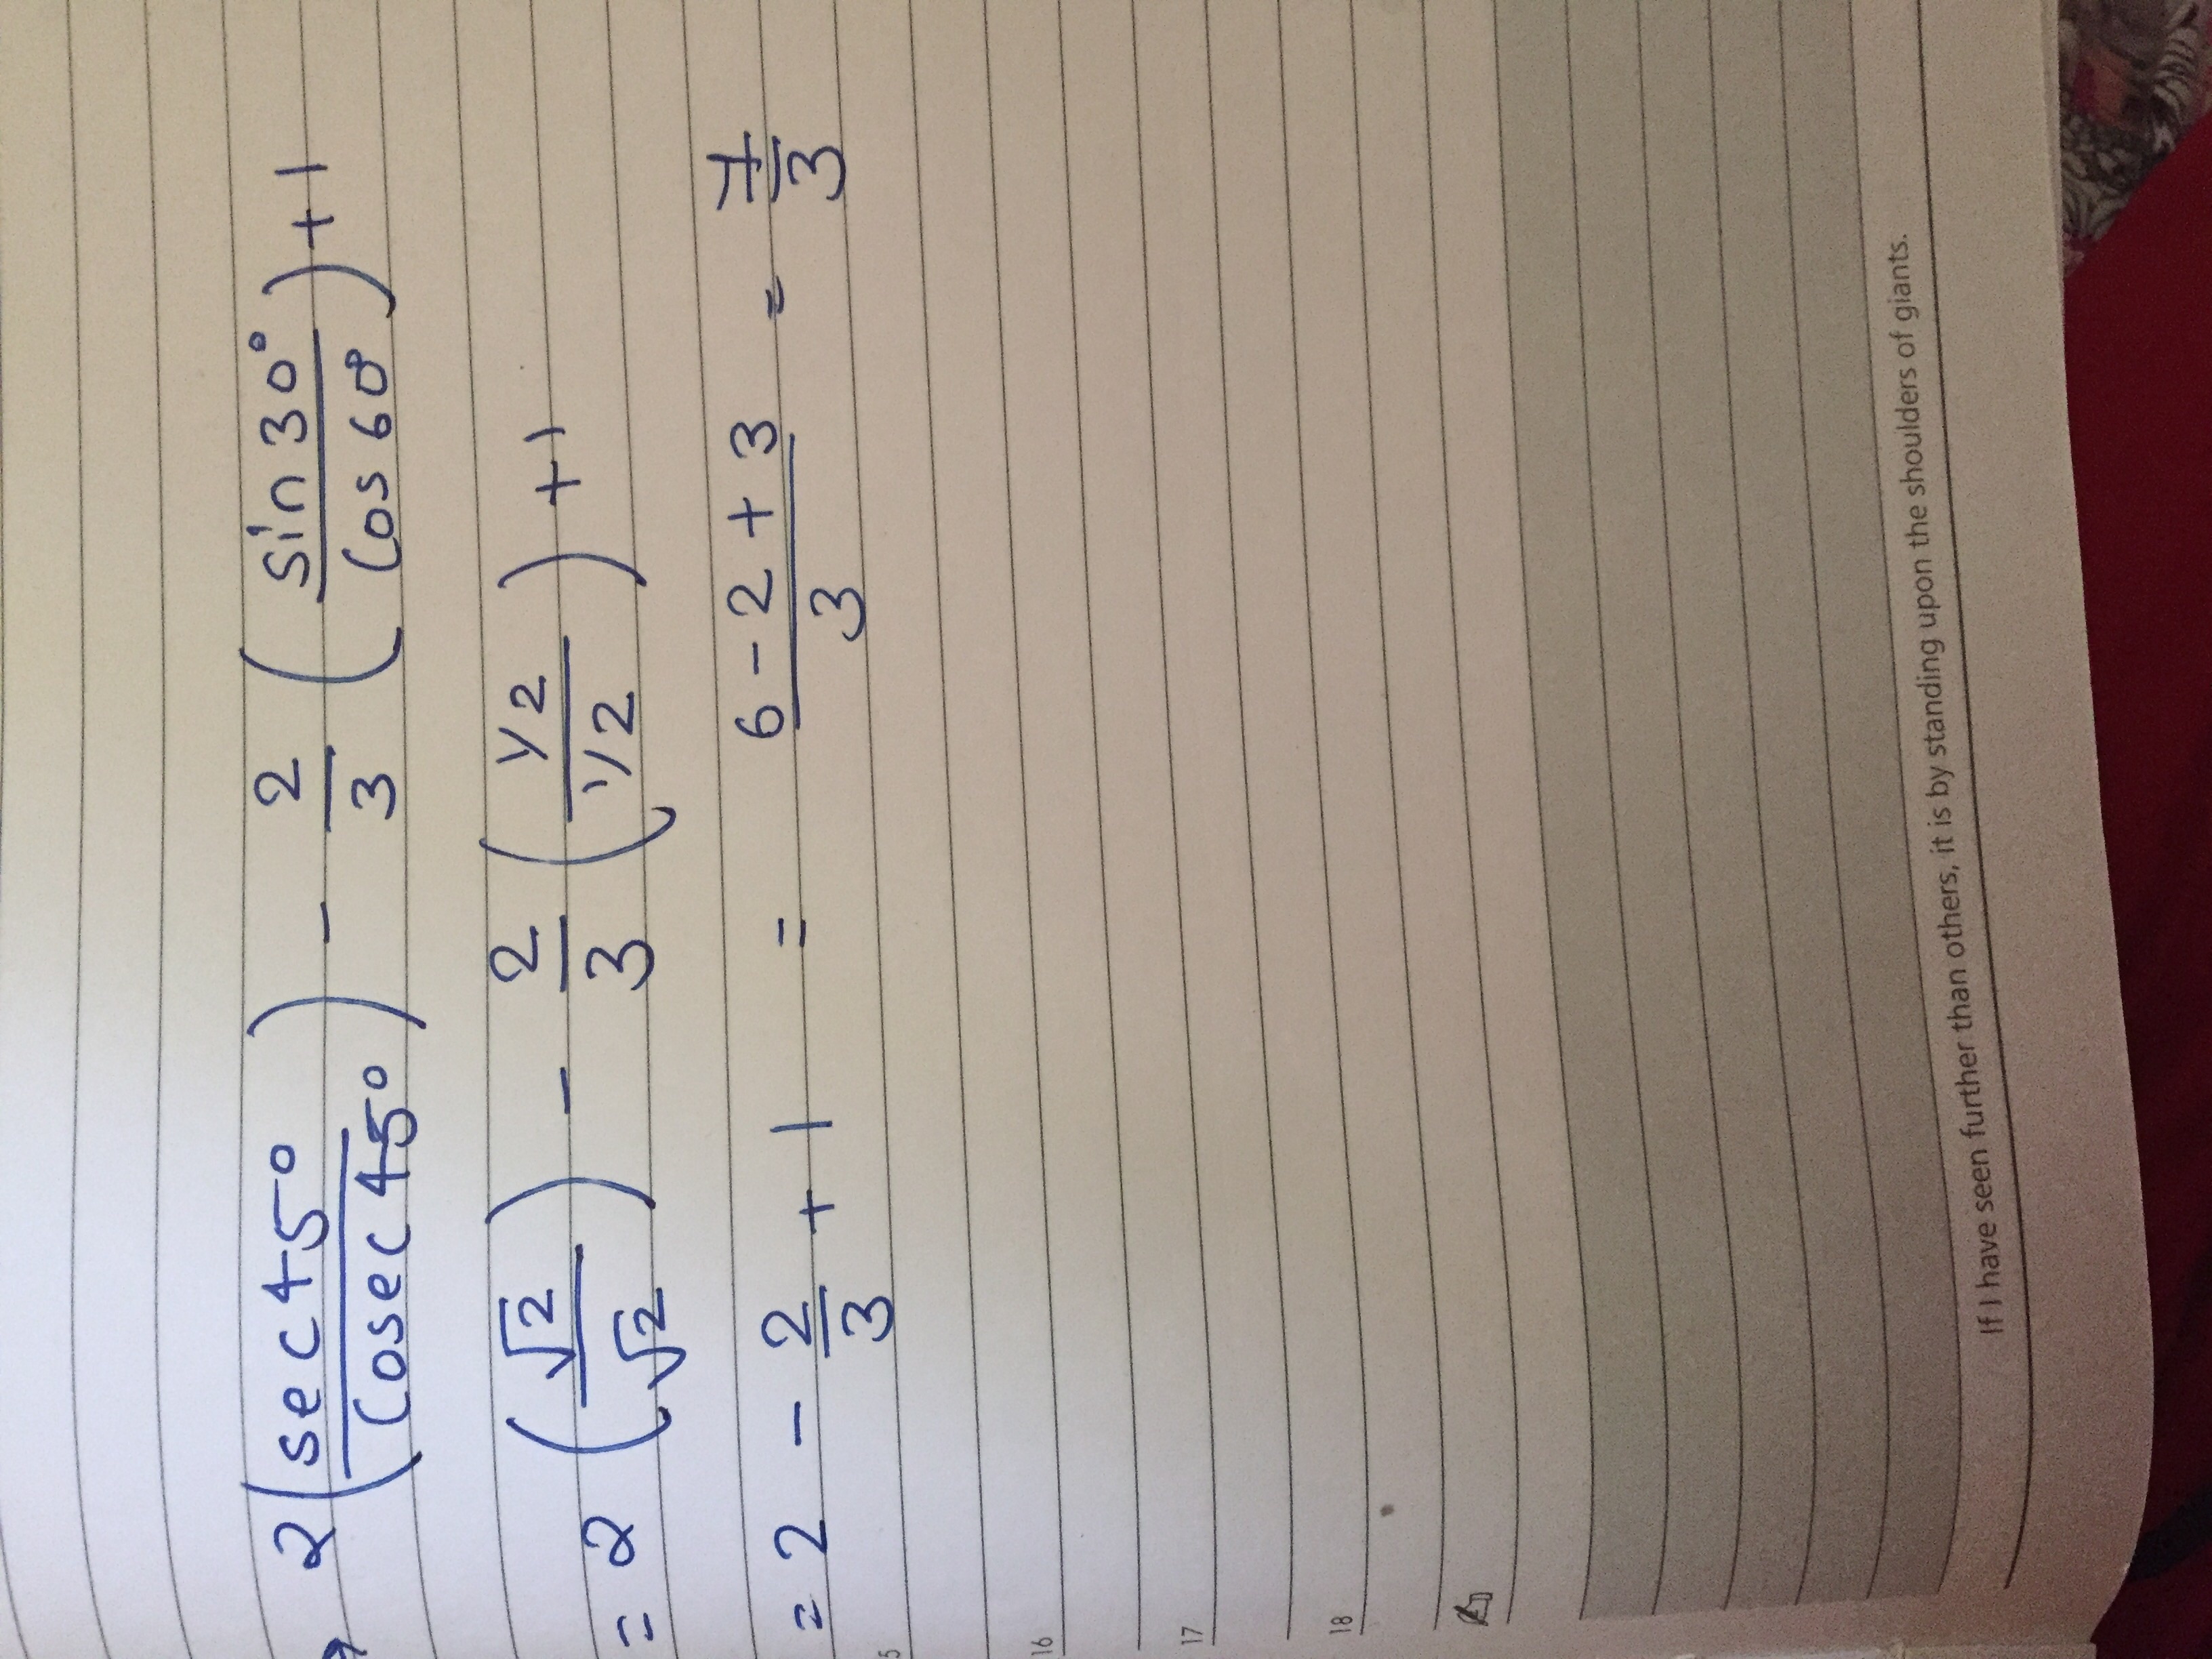 2 (sec 45° / Cosec 45°) - 2/3 (sin 30° / Cos 60°) + 1
= 2 (√2 / √2) - 2/3 (1/2 / 1/2) + 1
= 2 - 2/3 + 1 = 6 - 2 + 3 / 3 = 7/3
5
16
17
18
If I have seen further than others, it is by standing upon the shoulders of giants.